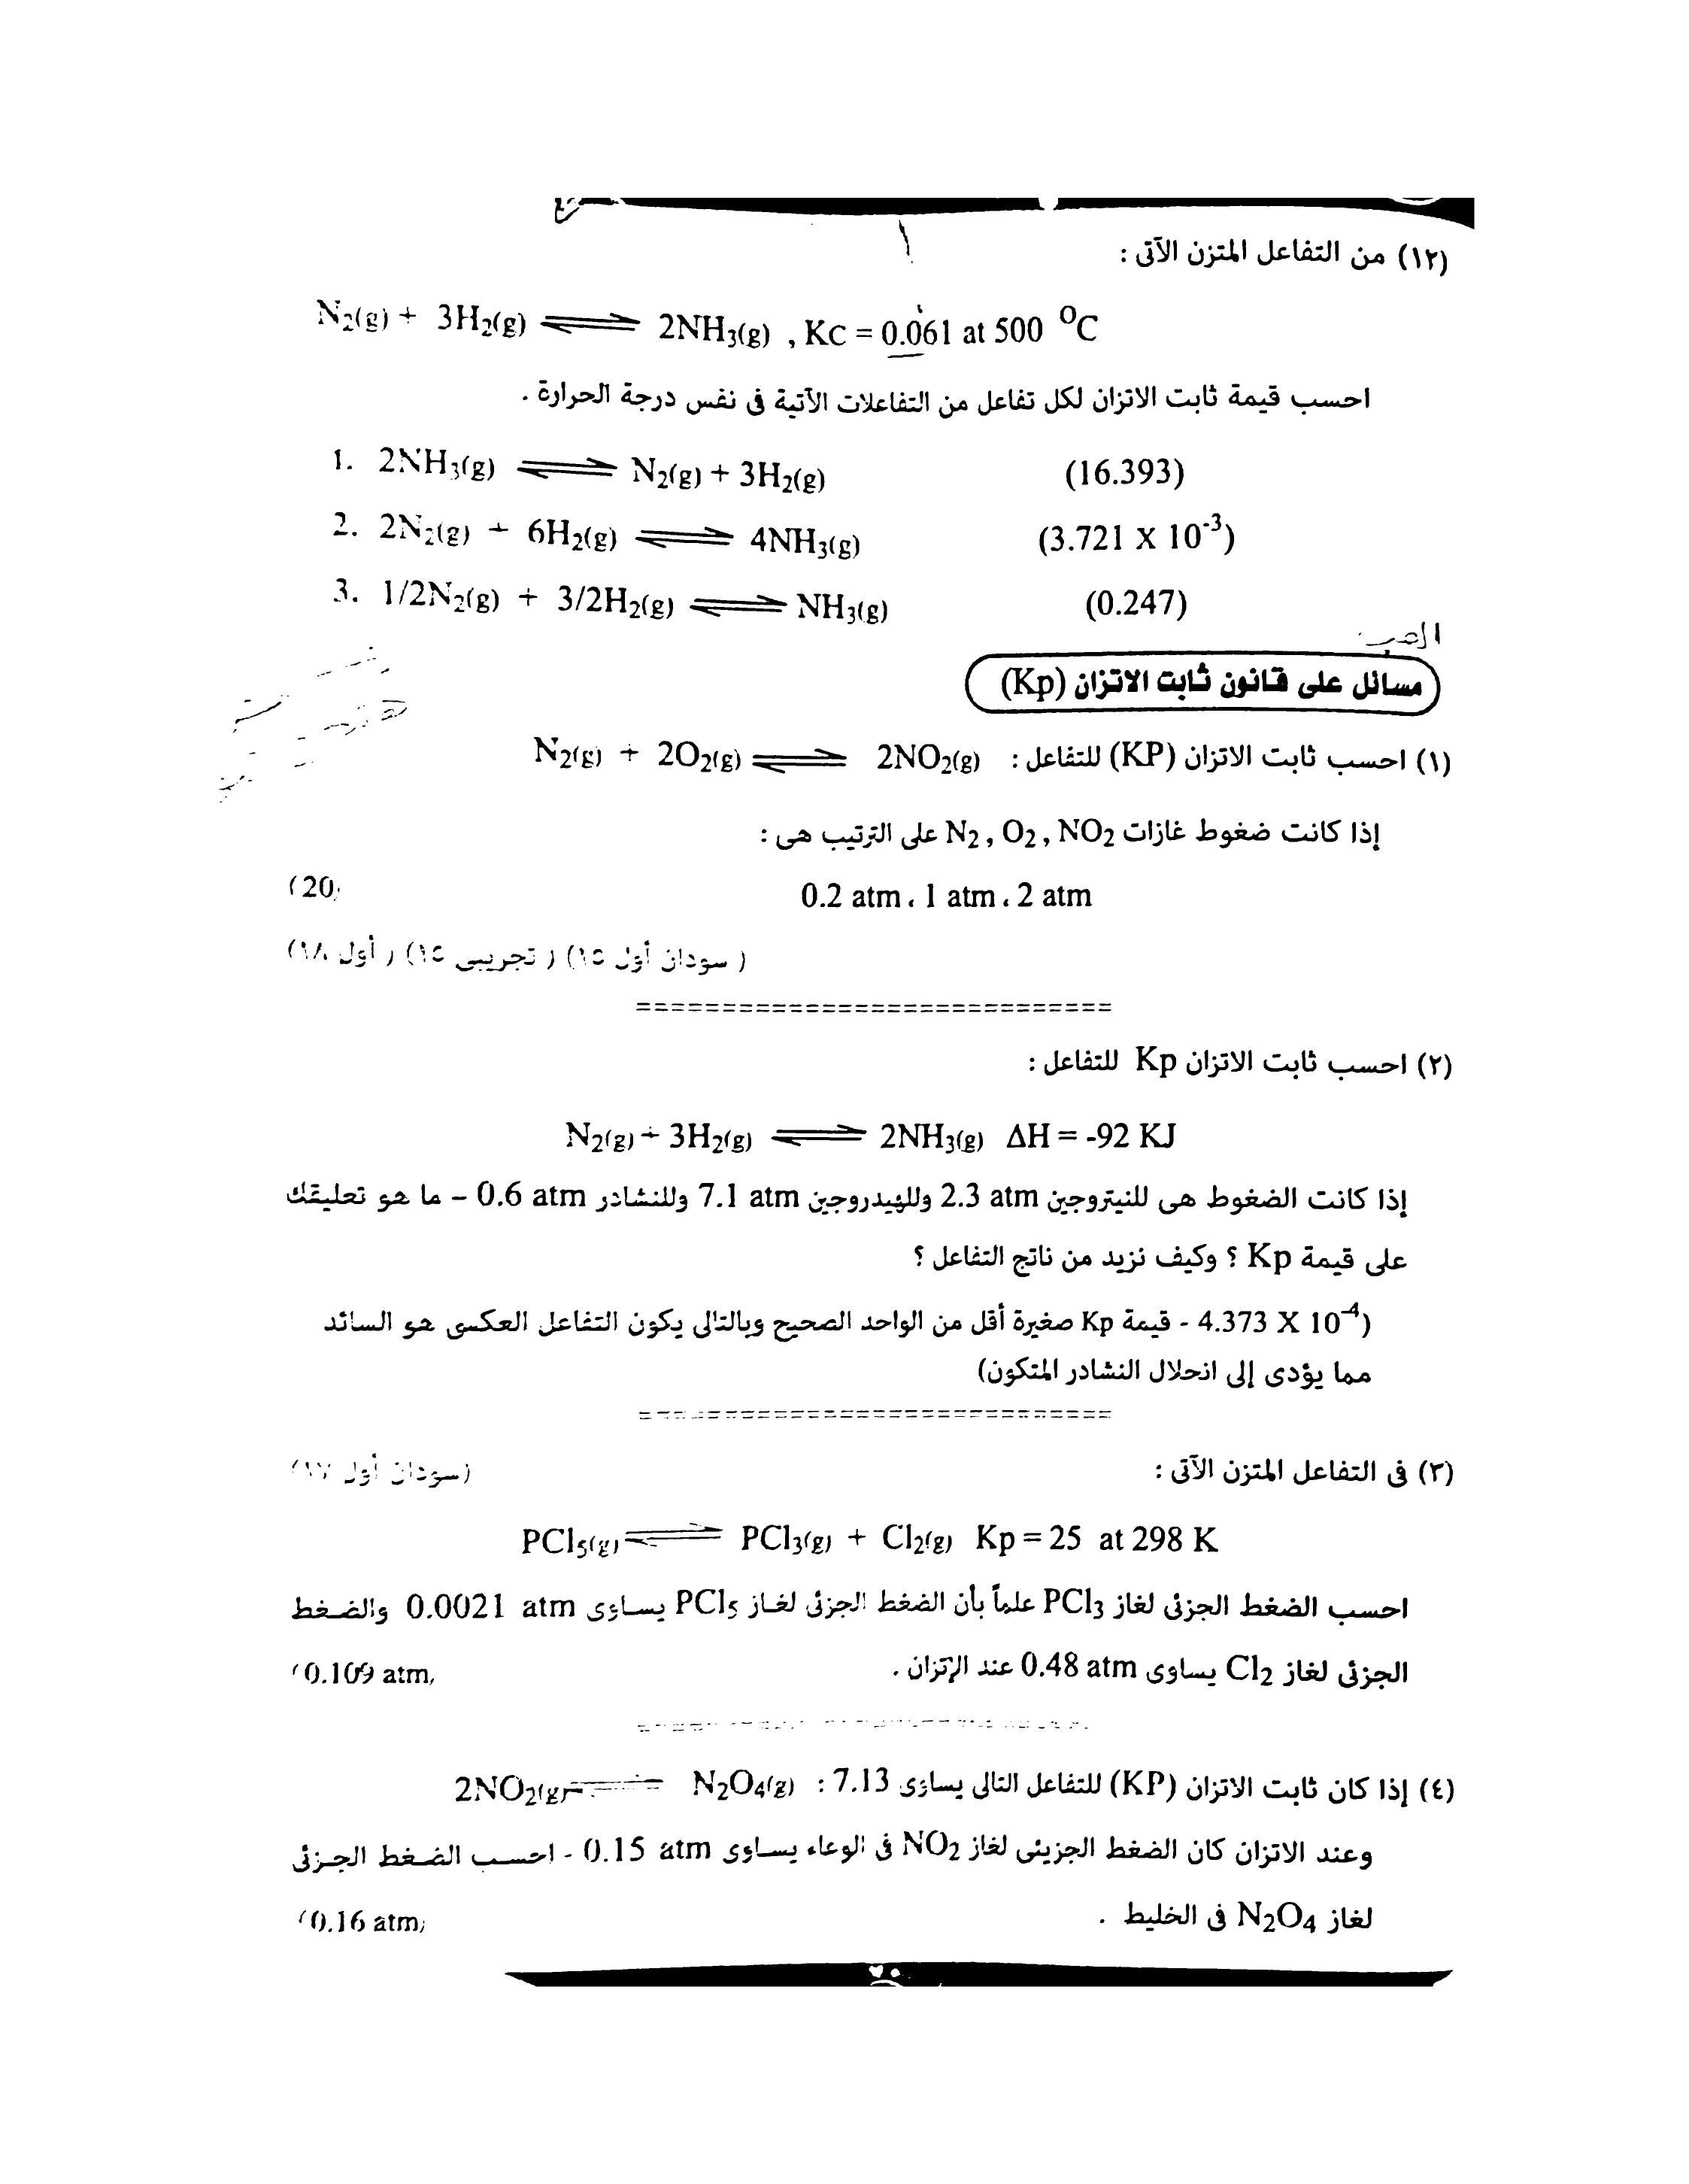 (١٢) من التفاعل المتزن الآتى :
N2(g) + 3H2(g) ⇌ 2NH3(g) , Kc = 0.061 at 500 °C
احسب قيمة ثابت الاتزان لكل تفاعل من التفاعلات الآتية فى نفس درجة الحرارة .
1. 2NH3(g) ⇌ N2(g) + 3H2(g) (16.393)
2. 2N2(g) + 6H2(g) ⇌ 4NH3(g) (3.721 X 10^-3)
3. 1/2N2(g) + 3/2H2(g) ⇌ NH3(g) (0.247)
مسائل على قانون ثابت الاتزان (Kp)
(١) احسب ثابت الاتزان (KP) للتفاعل : N2(g) + 2O2(g) ⇌ 2NO2(g)
إذا كانت ضغوط غازات N2 , O2 , NO2 على الترتيب هى :
0.2 atm ، 1 atm ، 2 atm (20)
( سودان أول ١٥) ( تجريبى ١٥) ( أول ١٨)
============================
(٢) احسب ثابت الاتزان Kp للتفاعل :
N2(g) + 3H2(g) ⇌ 2NH3(g) ΔH = -92 KJ
إذا كانت الضغوط هى للنيتروجين 2.3 atm وللهيدروجين 7.1 atm وللنشادر 0.6 atm – ما هو تعليقك
على قيمة Kp ؟ وكيف نزيد من ناتج التفاعل ؟
(4.373 X 10^-4 - قيمة Kp صغيرة أقل من الواحد الصحيح وبالتالى يكون التفاعل العكسى هو السائد
مما يؤدى إلى انحلال النشادر المتكون)
============================
(٣) فى التفاعل المتزن الآتى : (سودان أول ١٧)
PCl5(g) ⇌ PCl3(g) + Cl2(g) Kp = 25 at 298 K
احسب الضغط الجزئى لغاز PCl3 علماً بأن الضغط الجزئى لغاز PCl5 يساوى 0.0021 atm والضغط
الجزئى لغاز Cl2 يساوى 0.48 atm عند الإتزان . (0.109 atm)
(٤) إذا كان ثابت الاتزان (KP) للتفاعل التالى يساوى 7.13 : 2NO2(g) ⇌ N2O4(g)
وعند الاتزان كان الضغط الجزيئى لغاز NO2 فى الوعاء يساوى 0.15 atm - احسب الضغط الجزئى
لغاز N2O4 فى الخليط . (0.16 atm)